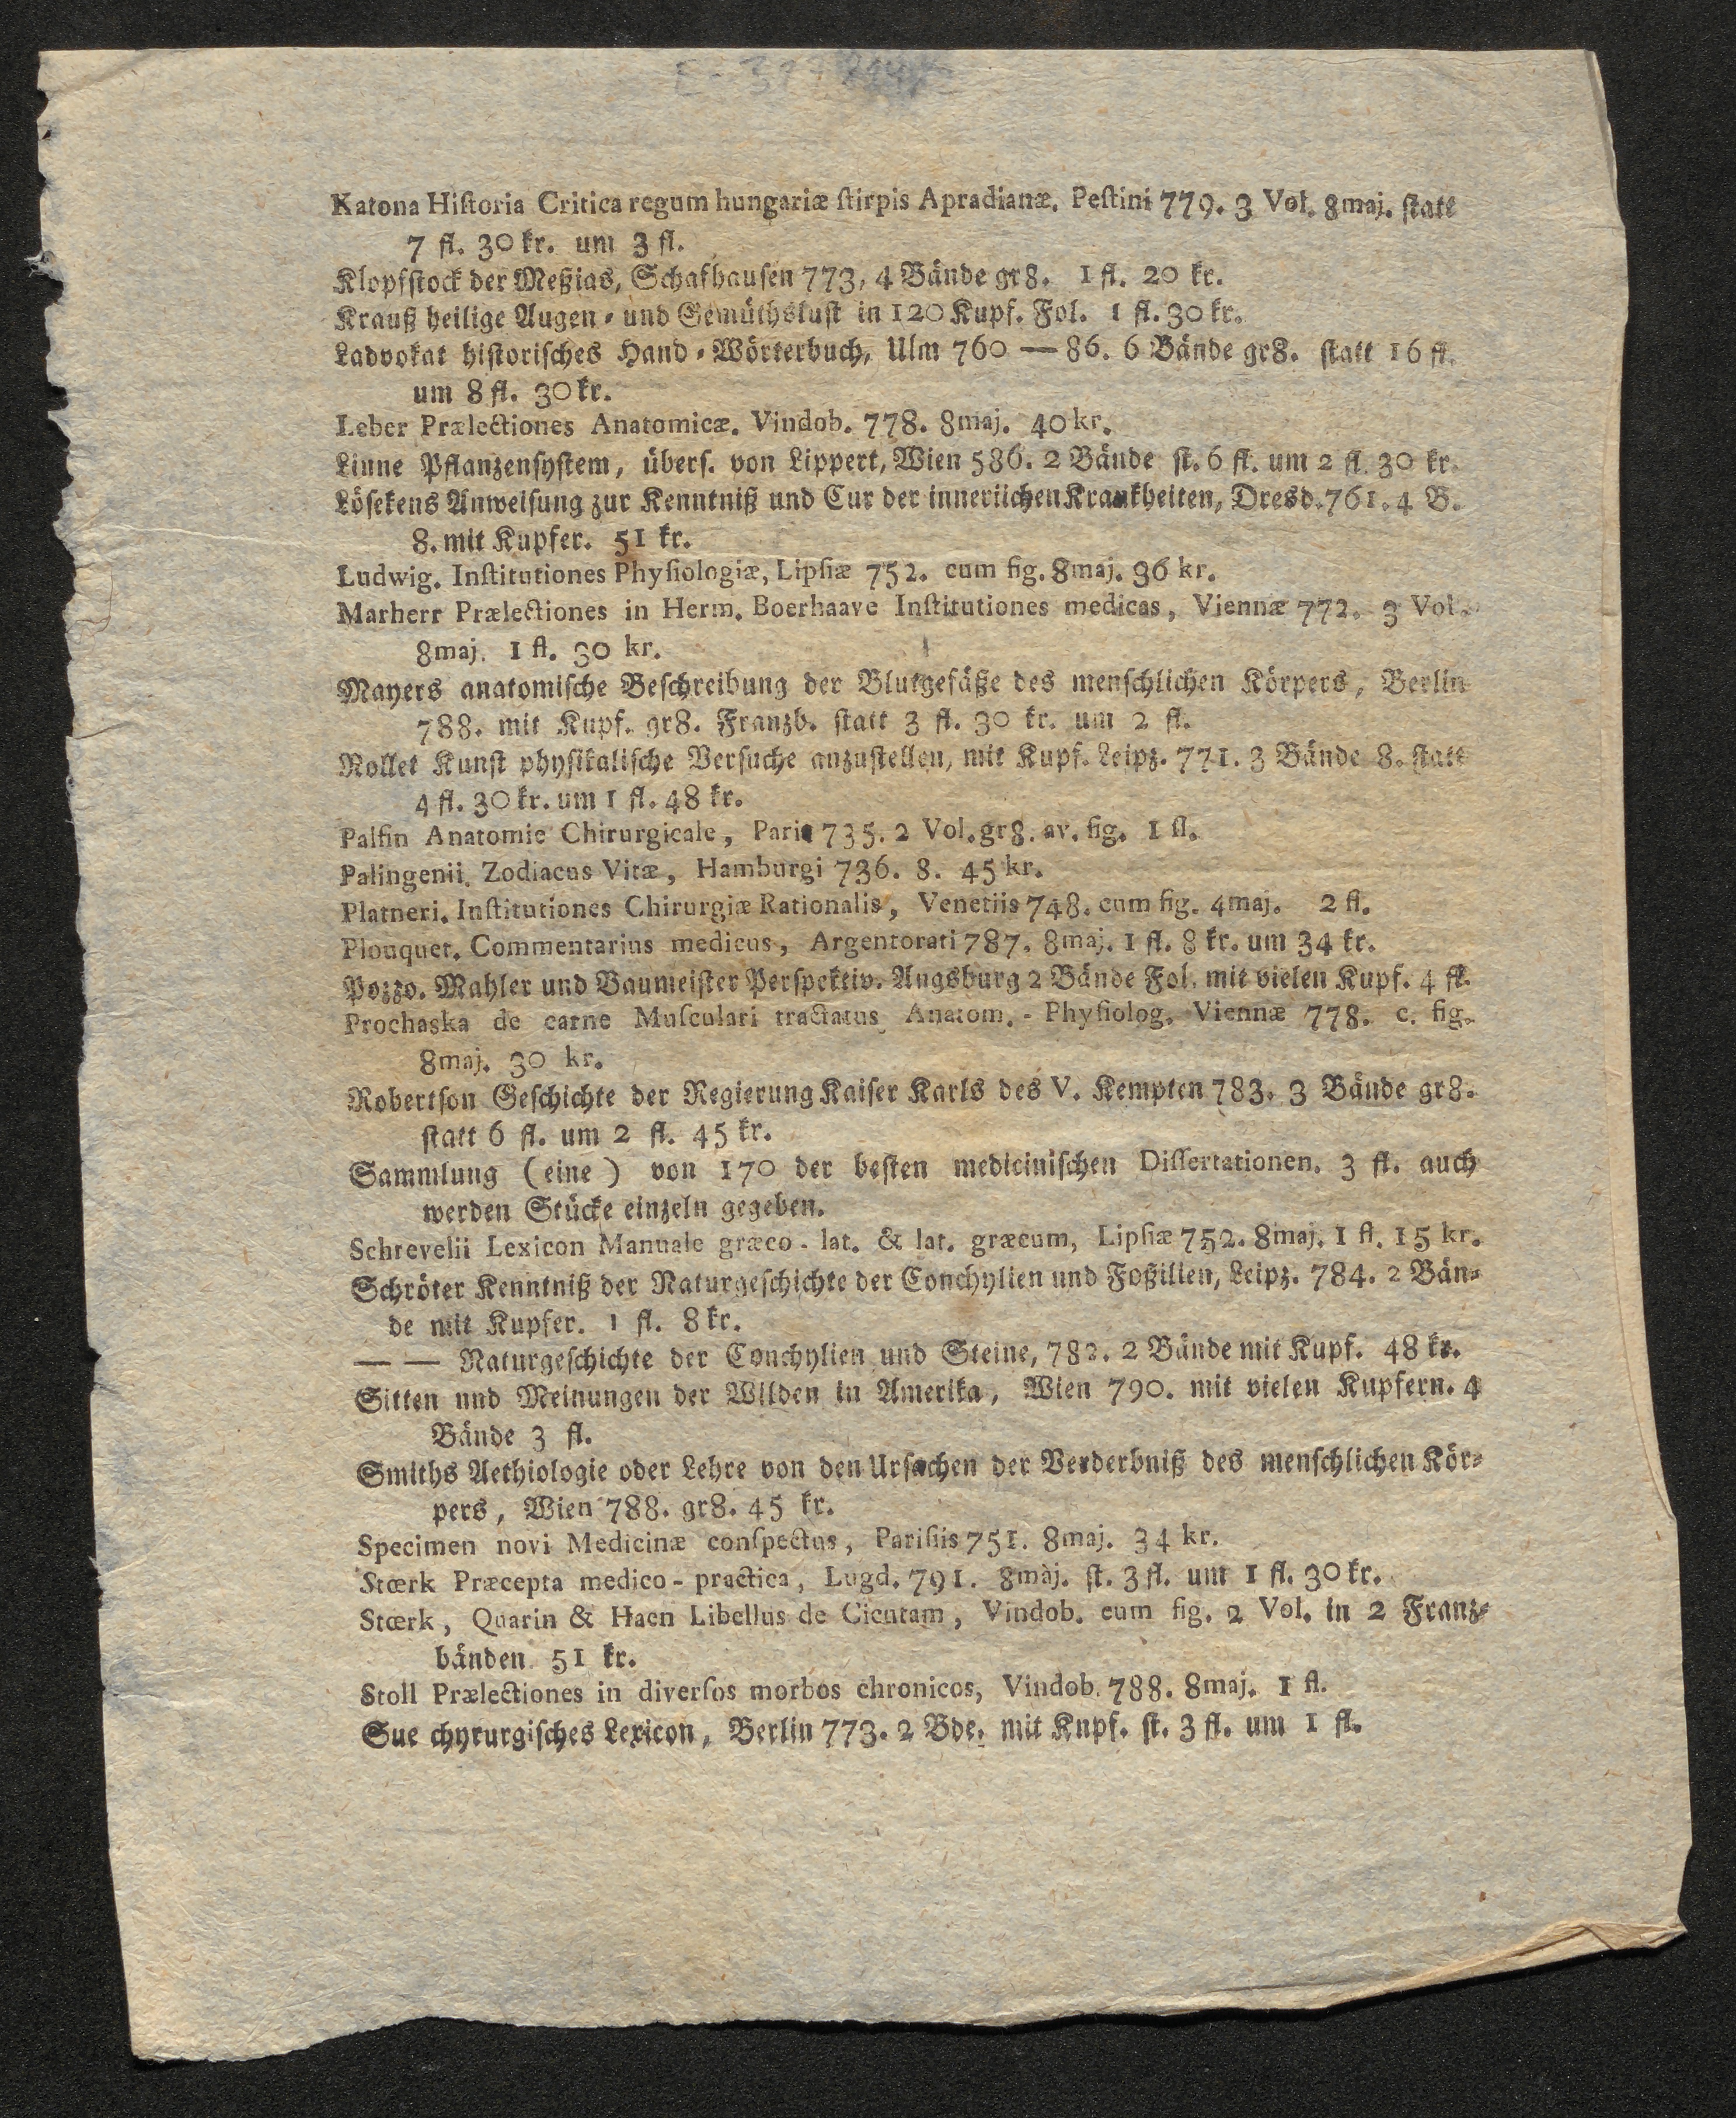 Katona Hiſtoria Critica regum hungariæ ſtirpis Apradianæ. Peſtini 779. 3 Vol. 8maj. ſtatt
7 fl. 30 kr. um 3 fl.
Klopfſtock der Meßias, Schafhauſen 773, 4 Bände gr8. 1 fl. 20 kr.
Krauß heilige Augen- und Gemüthsluſt in 120 Kupf. Fol. 1 fl. 30 kr.
Ladvokat hiſtoriſches Hand-Wörterbuch, Ulm 760 — 86. 6 Bände gr8. ſtatt 16 fl.
um 8 fl. 30 kr.
Leber Prælectiones Anatomicæ. Vindob. 778. 8maj. 40 kr.
Linne Pflanzenſyſtem, überſ. von Lippert, Wien 586. 2 Bände ſt. 6 fl. um 2 fl. 30 kr.
Löſekens Anweiſung zur Kenntniß und Cur der innerlichen Krankheiten, Dresd. 761. 4 B.
8. mit Kupfer. 51 kr.
Ludwig. Inſtitutiones Phyſiologiæ, Lipſiæ 752. cum fig. 8maj. 36 kr.
Marherr Prælectiones in Herm. Boerhaave Inſtitutiones medicas, Viennæ 772. 3 Vol.
8maj. 1 fl. 30 kr.
Mayers anatomiſche Beſchreibung der Blutgefäße des menſchlichen Körpers, Berlin
788. mit Kupf. gr8. Franzb. ſtatt 3 fl. 30 kr. um 2 fl.
Nollet Kunſt phyſikaliſche Verſuche anzuſtellen, mit Kupf. Leipz. 771. 3 Bände 8. ſtatt
4 fl. 30 kr. um 1 fl. 48 kr.
Palfin Anatomie Chirurgicale, Paris 735. 2 Vol. gr8. av. fig. 1 fl.
Palingenii. Zodiacus Vitæ, Hamburgi 736. 8. 45 kr.
Platneri. Inſtitutiones Chirurgiæ Rationalis, Venetiis 748. cum fig. 4maj. 2 fl.
Plouquet. Commentarius medicus, Argentorati 787. 8maj. 1 fl. 8 kr. um 34 kr.
Pozzo. Mahler und Baumeiſter Perſpektiv. Augsburg 2 Bände Fol. mit vielen Kupf. 4 fl.
Prochaska de carne Muſculari tractatus Anatom. - Phyſiolog. Viennæ 778. c. fig.
8maj. 30 kr.
Robertſon Geſchichte der Regierung Kaiſer Karls des V. Kempten 783. 3 Bände gr8.
ſtatt 6 fl. um 2 fl. 45 kr.
Sammlung (eine) von 170 der beſten mediciniſchen Diſſertationen. 3 fl. auch
werden Stücke einzeln gegeben.
Schrevelii Lexicon Manuale græco - lat. & lat. græcum, Lipſiæ 752. 8maj. 1 fl. 15 kr.
Schröter Kenntniß der Naturgeſchichte der Conchylien und Foßilien, Leipz. 784. 2 Bän-
de mit Kupfer. 1 fl. 8 kr.
— — Naturgeſchichte der Conchylien und Steine, 782. 2 Bände mit Kupf. 48 kr.
Sitten und Meinungen der Wilden in Amerika, Wien 790. mit vielen Kupfern. 4
Bände 3 fl.
Smiths Aethiologie oder Lehre von den Urſachen der Verderbniß des menſchlichen Kör-
pers, Wien 788. gr8. 45 kr.
Specimen novi Medicinæ conſpectus, Pariſiis 751. 8maj. 34 kr.
Stœrk Præcepta medico - practica, Lugd. 791. 8maj. ſt. 3 fl. um 1 fl. 30 kr.
Stœrk, Quarin & Haen Libellus de Cicutam, Vindob. cum fig. 2 Vol. in 2 Franz-
bänden 51 kr.
Stoll Prælectiones in diverſos morbos chronicos, Vindob. 788. 8maj. 1 fl.
Sue chyrurgiſches Lexicon, Berlin 773. 2 Bde. mit Kupf. ſt. 3 fl. um 1 fl.